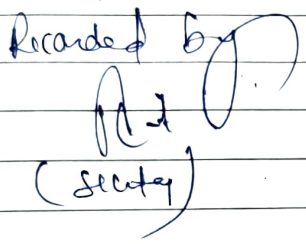 Recorded by
(Secretary)